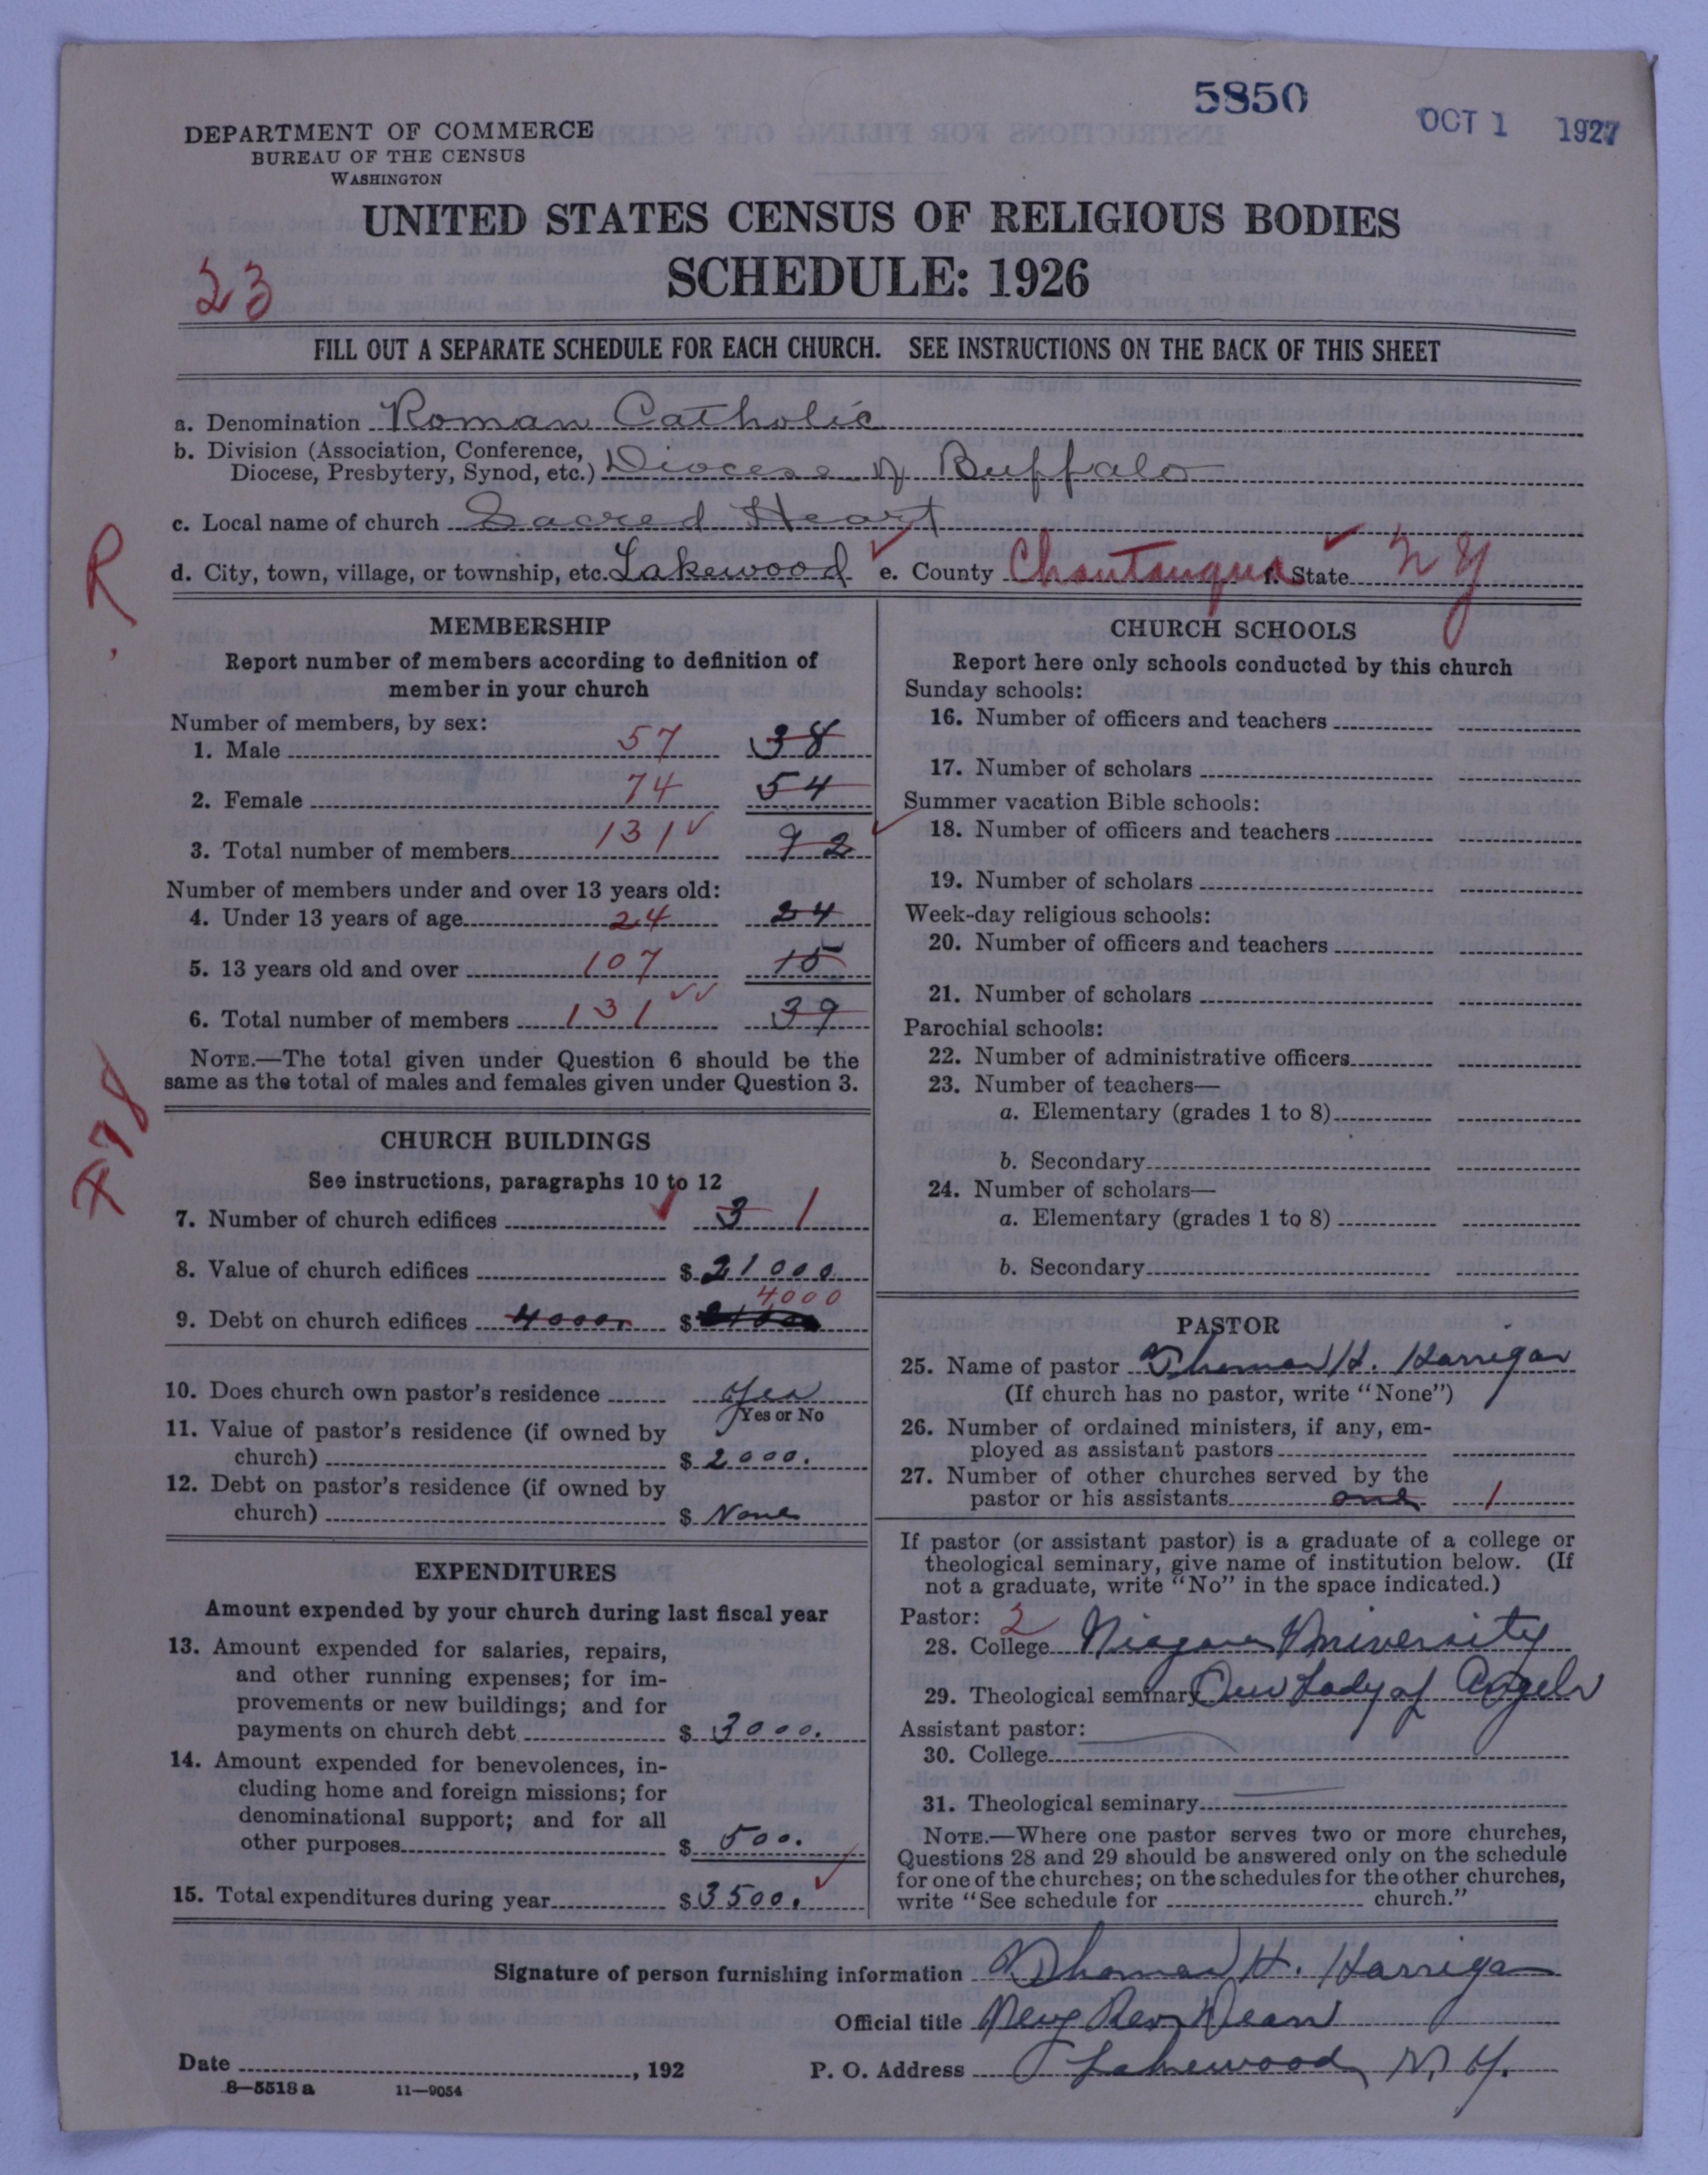 5850
OCT 1 1927
DEPARTMENT OF COMMERCE
BUREAU OF THE CENSUS
WASHINGTON
UNITED STATES CENSUS OF RELIGIOUS BODIES
SCHEDULE: 1926
23
FILL OUT A SEPARATE SCHEDULE FOR EACH CHURCH. SEE INSTRUCTIONS ON THE BACK OF THIS SHEET
a. Denomination Roman Catholic
b. Division (Association, Conference, Diocese, Presbytery, Synod, etc.) Diocese of Buffalo
c. Local name of church Sacred Heart
R
d. City, town, village, or township, etc. Lakewood ✓ e. County Chautauqua ✓ f. State N Y
MEMBERSHIP
Report number of members according to definition of
member in your church
Number of members, by sex:
1. Male 57 38
2. Female 74 54
3. Total number of members 131 ✓ 92 ✓
Number of members under and over 13 years old:
4. Under 13 years of age 24 24
5. 13 years old and over 107 15
6. Total number of members 131 ✓✓ 39
NOTE.—The total given under Question 6 should be the
same as the total of males and females given under Question 3.
CHURCH BUILDINGS
See instructions, paragraphs 10 to 12
7. Number of church edifices ✓ 3 1
8. Value of church edifices $ 21000
4000
9. Debt on church edifices 4000. $
10. Does church own pastor's residence Yes
Yes or No
11. Value of pastor's residence (if owned by
church) $ 2000.
12. Debt on pastor's residence (if owned by
church) $ None
EXPENDITURES
Amount expended by your church during last fiscal year
13. Amount expended for salaries, repairs,
and other running expenses; for im-
provements or new buildings; and for
payments on church debt $ 3000.
14. Amount expended for benevolences, in-
cluding home and foreign missions; for
denominational support; and for all
other purposes $ 500.
15. Total expenditures during year $ 3500. ✓
CHURCH SCHOOLS
Report here only schools conducted by this church
Sunday schools:
16. Number of officers and teachers
17. Number of scholars
Summer vacation Bible schools:
18. Number of officers and teachers
19. Number of scholars
Week-day religious schools:
20. Number of officers and teachers
21. Number of scholars
Parochial schools:
22. Number of administrative officers
23. Number of teachers—
a. Elementary (grades 1 to 8)
b. Secondary
24. Number of scholars—
a. Elementary (grades 1 to 8)
b. Secondary
PASTOR
25. Name of pastor Thomas H. Harrigan
(If church has no pastor, write "None")
26. Number of ordained ministers, if any, em-
ployed as assistant pastors
27. Number of other churches served by the
pastor or his assistants one 1
If pastor (or assistant pastor) is a graduate of a college or
theological seminary, give name of institution below. (If
not a graduate, write "No" in the space indicated.)
Pastor: 2
28. College Niagara University
29. Theological seminary Our Lady of Angels
Assistant pastor:
30. College
31. Theological seminary
NOTE.—Where one pastor serves two or more churches,
Questions 28 and 29 should be answered only on the schedule
for one of the churches; on the schedules for the other churches,
write "See schedule for church."
Signature of person furnishing information Thomas H. Harrigan
Official title Very Rev Dean
Date , 192 P. O. Address Lakewood N. Y.
8—5518 a 11—9054